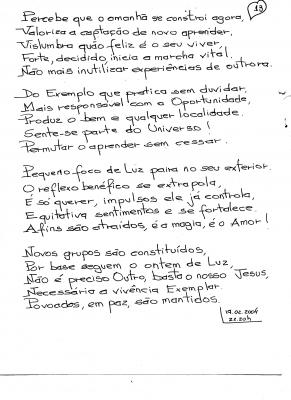 13
Percebe que o amanhã se constroi agora,
Valoriza a captação de novo aprender,
Vislumbra quão feliz é o seu viver,
Forte, decidido, inicia a marcha vital.
Não mais inutilizar experiências de outrora.
Do Exemplo que pratica sem duvidar,
Mais responsável com a Oportunidade,
Produz o bem e qualquer localidade.
Sente-se parte do Universo!
Permutar o aprender sem cessar.
Pequeno foco de Luz paira no seu exterior.
O reflexo benéfico se extrapola,
É só querer, impulsos ele já controla,
Equitativa sentimentos e se fortalece.
Afins são atraídos, é a magia, é o Amor!
Novos grupos são constituídos,
Por base seguem o ontem de Luz,
Não é preciso Outro, basta o nosso Jesus,
Necessária a vivência Exemplar.
Povoados, em paz, são mantidos.
19.02.2004
22.20h